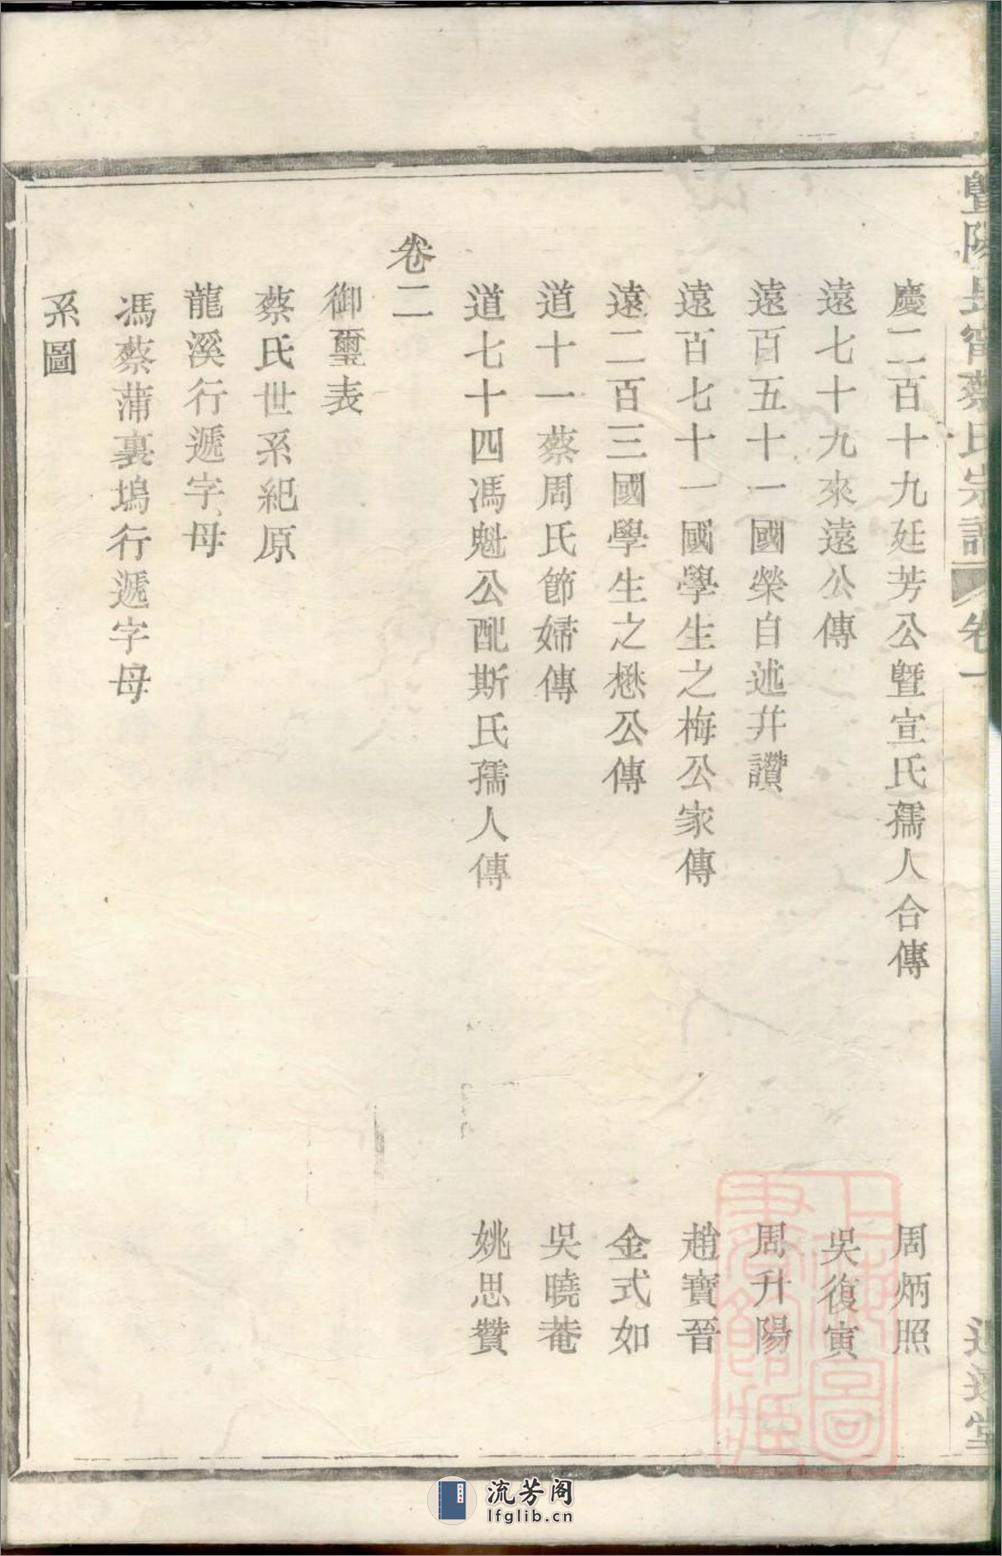 暨陽長甯蔡氏宗譜 卷一
慶二百十九廷芳公暨宣氏孺人合傳 周炳照
遠七十九來遠公傳 吳復寅
遠百五十一國榮自述并讚 周升陽
遠百七十一國學生之梅公家傳 趙寶晉
遠二百三國學生之懋公傳 金式如
道十一蔡周氏節婦傳 吳曉菴
道七十四馮魁公配斯氏孺人傳 姚思贊
卷二
御璽表
蔡氏世系紀原
龍溪行遞字母
馮蔡蒲裏塢行遞字母
系圖
上海圖書館藏
流芳阁
lfglib.cn